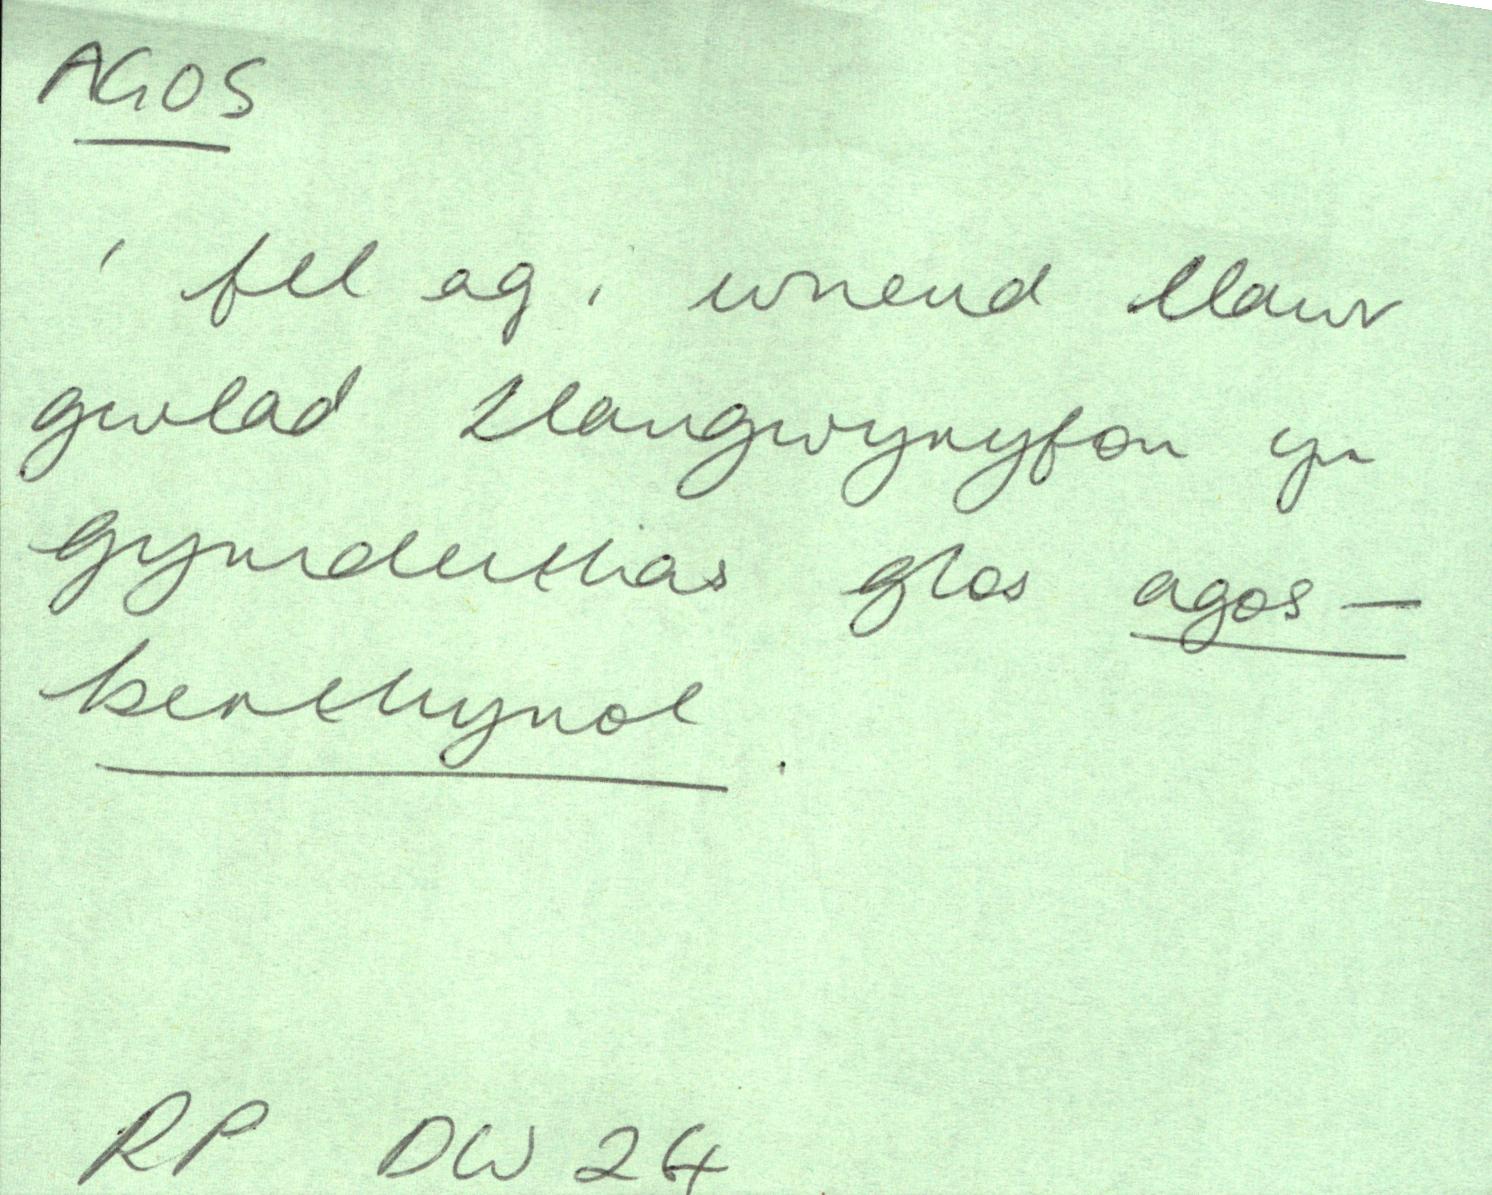 AGOS
' fel ag i wneud llawr
gwlad Llangwyryfon yn
gymdeithas glos agos-
berthynol.
RP DW 24